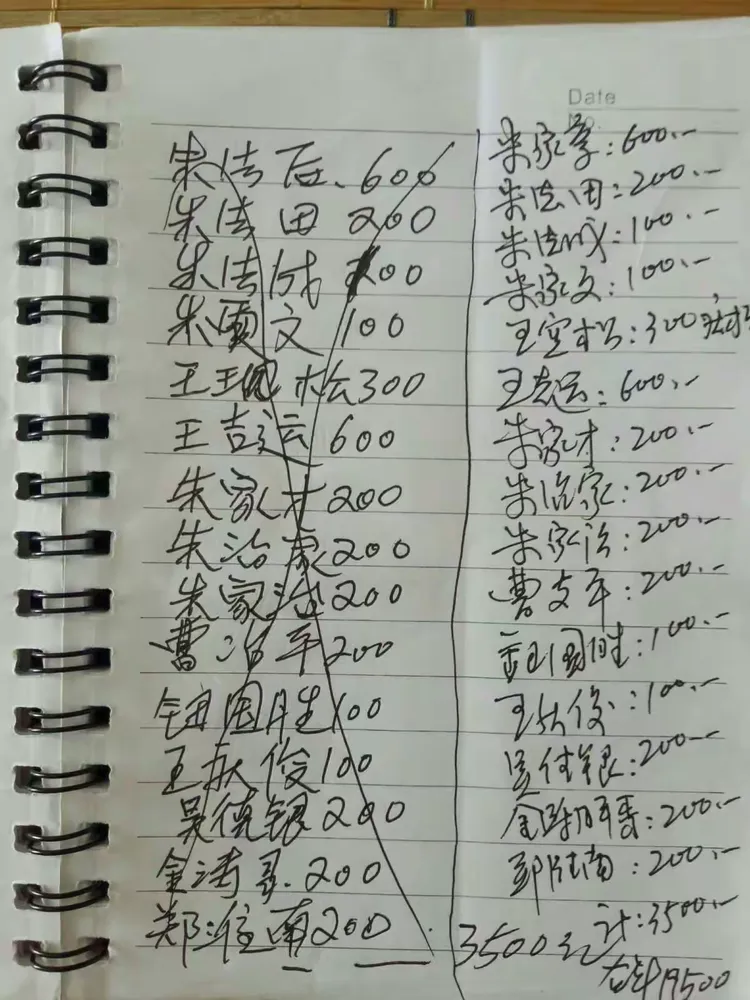 Date
No.
朱法后、600
朱法田 200
朱法成 200
朱家文 100
王 松300
王志运 600
朱家才200
朱治家200
朱家治200
曹 平200
国胜100
王 俊100
吴德银200
金涛 .200
郑淮南200
3500元
朱家孝:600.--
朱法田:200.--
朱法成:100.--
朱家文:100.--
王宝松:300
王志运:600.--
朱家才:200.--
朱治家:200.--
朱家治:200.--
曹支平:200.--
国胜:100.--
王 俊:100.--
吴付银:200.--
金 :200.--
郑淮南:200.--
计:3500.--